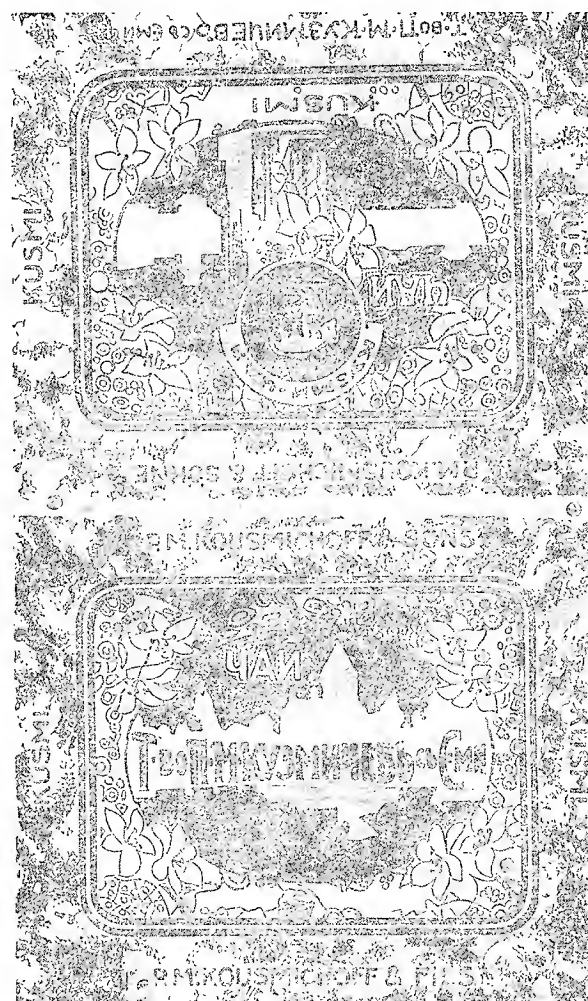 Т-во П.М.КУЗМИЧЕВЪ съ С-ми
KUSMI
KUSMI
KUSMI
ЧАЙ
P.M.KOUSMICHOFF & SÖHNE
P.M.KOUSMICHOFF & SONS
ЧАЙ
KUSMI
Т-во П.М.КУЗМИЧЕВЪ съ С-ми
KUSMI
P.M.KOUSMICHOFF & FILS